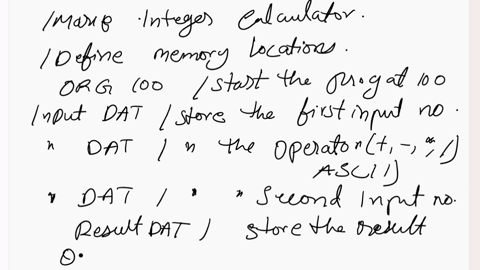 /Marie Integer Calculator.
/Define memory locations.
ORG 100 /start the prog at 100
Input DAT / store the first input no.
" DAT / " the operator (+, -, *, /)
ASCII)
" DAT / " " Second Input no.
Result DAT / store the result